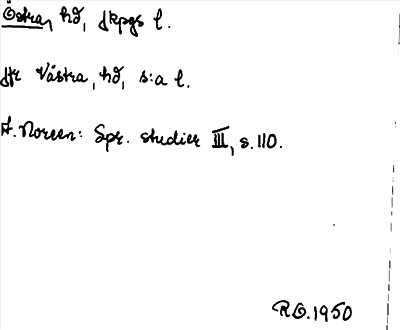 Östra, hd, Jkpgs l.
Jfr Västra, hd, s:a l.
A. Noreen: Spr. studier III, s. 110.
R.Ö. 1950